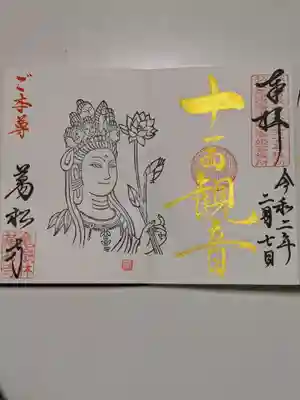 奉拝
令和二年
二月七日
十一面観音
ご本尊
萬松寺